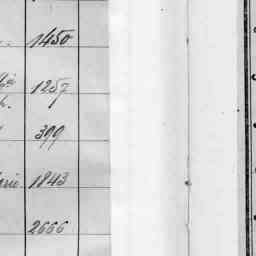 1450
1257
h.
399
1843
2666